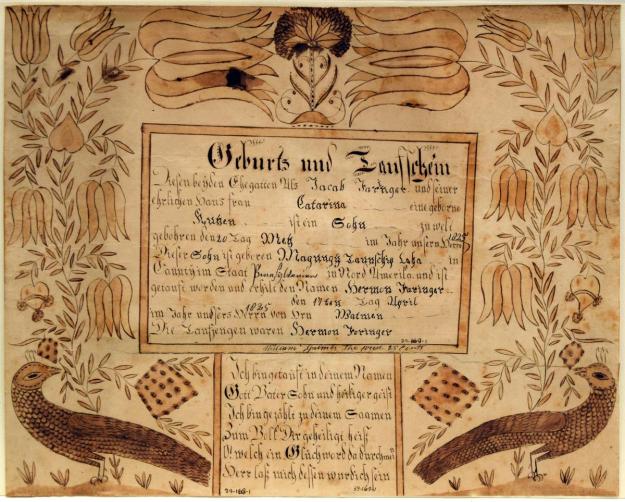 Geburts und Taufschein
Diesen beyden Ehegatten Als Jacob Faringer und seiner
ehrlichen Haus frau Catarina eine geborne
ist ein Sohn zu welt
gebohren den 20 Tag Metz im Jahr unsers Herrn 1825
Dieser Sohn ist geboren Taunschip in
Caunty im Staat in Nord Amerika und ist
getauft worden und erhilt den Namen Hermon Faringer
den 17ten Tag April
im Jahr unsers Herrn 1825 von Hrn Watmen
Die Taufzeugen waren Hermon Feringer
29-166-1
The price 25 Cents
Ich bin getauft in deinem Namen
Gott Vater Sohn und heiliger geist
Ich bin gezählt zu deinem Saamen
Zum Volk Der geheiligt heist
O! welch ein Glück ward da durch mein
Herr laß mich dessen wurdich sein
29-166-1